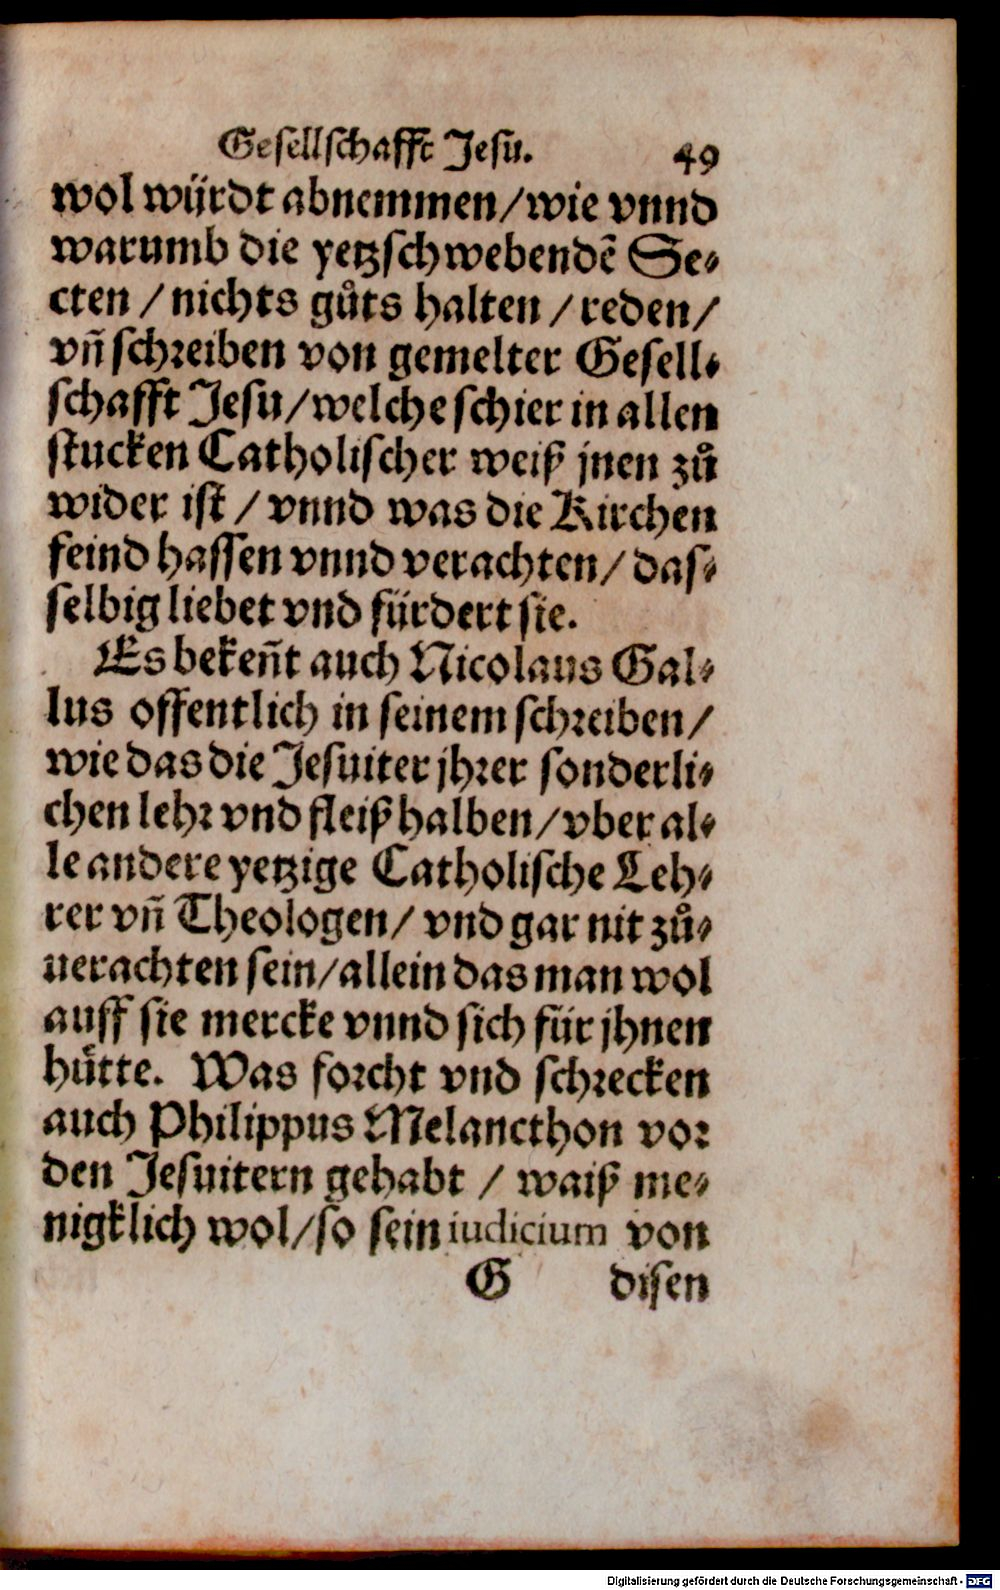 Gesellschafft Jesu. 49
wol würdt abnemmen/wie vnnd
warumb die yetzschwebendẽ Se-
cten / nichts gůts halten / reden/
vñ schreiben von gemelter Gesell-
schafft Jesu/welche schier in allen
stucken Catholischer weiß jnen zů
wider ist / vnnd was die Kirchen
feind hassen vnnd verachten/ das-
selbig liebet vnd fürdert sie.
Es bekeñt auch Nicolaus Gal-
lus offentlich in seinem schreiben/
wie das die Jesuiter jhrer sonderli-
chen lehr vnd fleiß halben/vber al-
le andere yetzige Catholische Leh-
rer vñ Theologen/ vnd gar nit zů-
uerachten sein/allein das man wol
auff sie mercke vnnd sich für jhnen
hůtte. Was forcht vnd schrecken
auch Philippus Melancthon vor
den Jesuitern gehabt / waiß me-
nigklich wol/so sein iudicium von
G disen
Digitalisierung gefördert durch die Deutsche Forschungsgemeinschaft - DFG